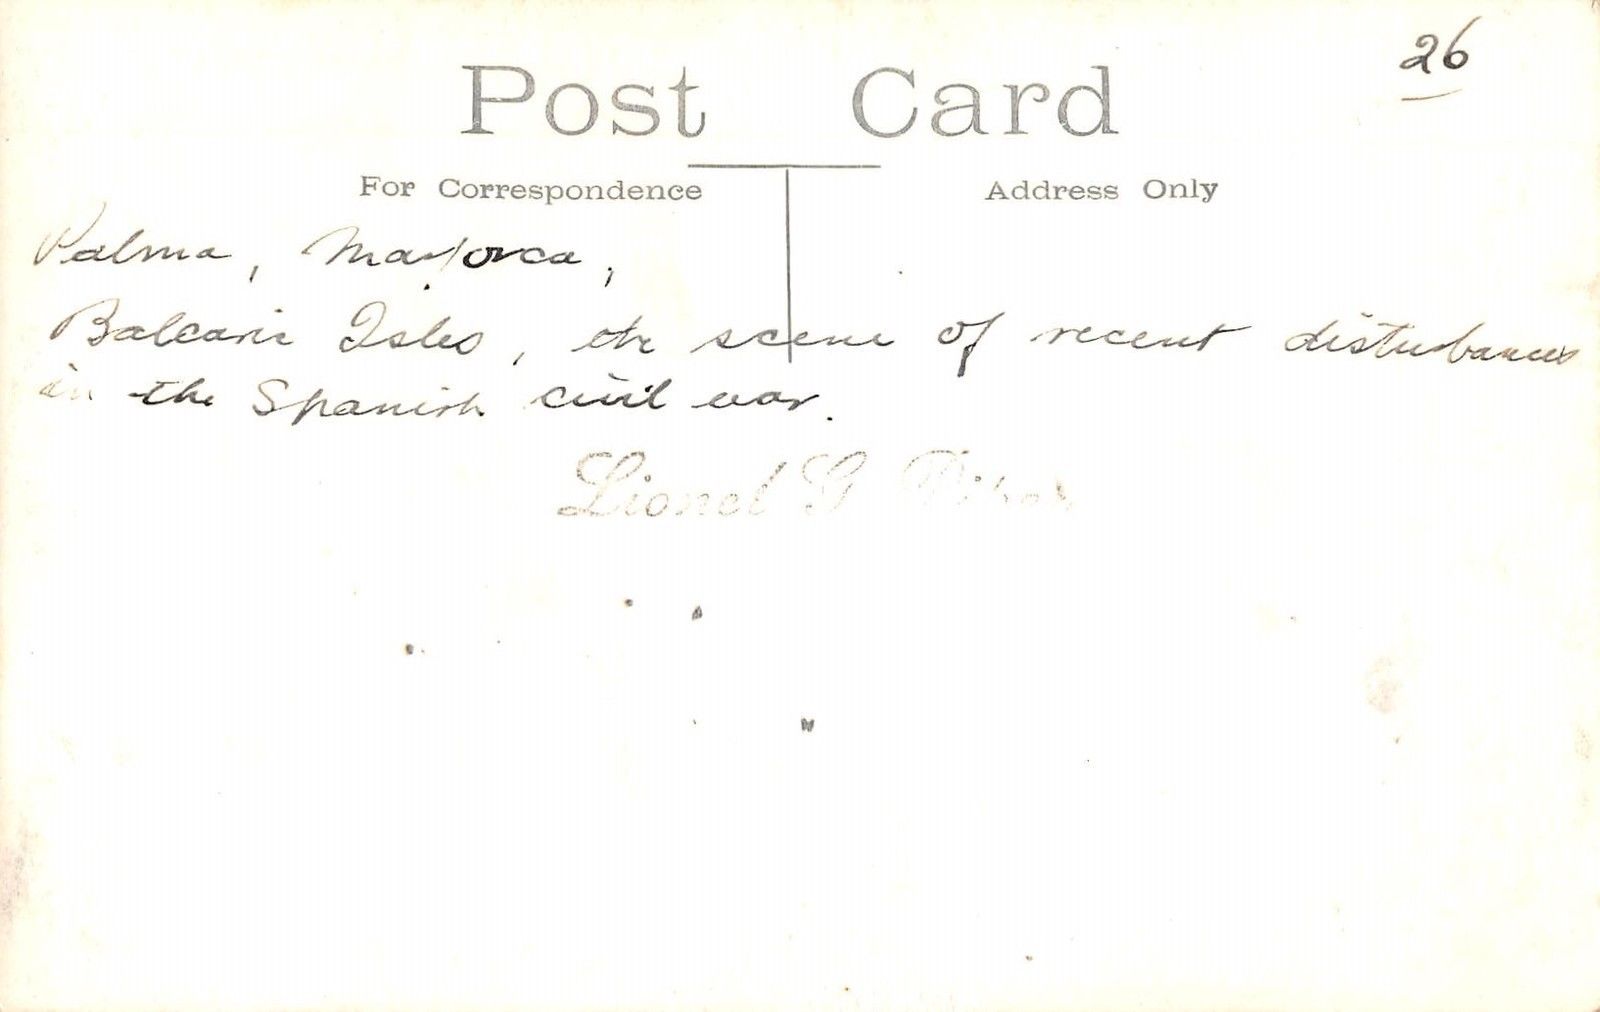 26
Post Card
For Correspondence
Address Only
Palma, Majorca,
Balearic Isles, the scene of recent disturbances
in the Spanish civil war.
Lionel G